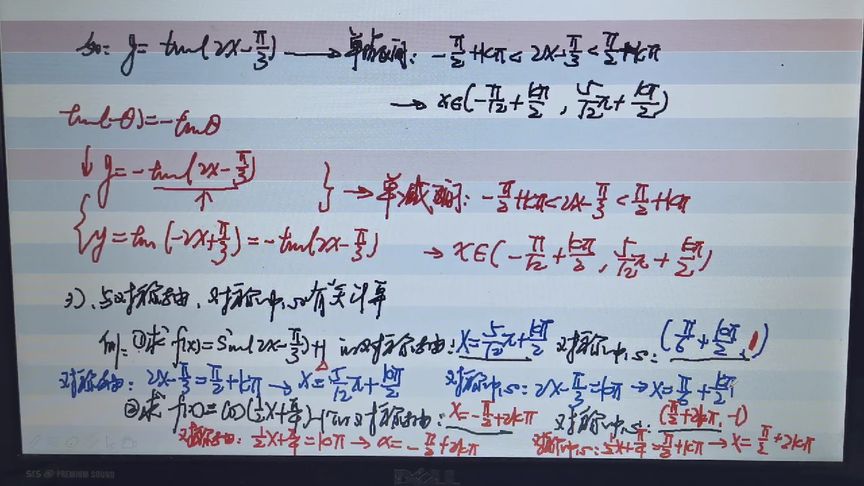 如: y = tan(2x-π/3) → 单增区间: -π/2+kπ < 2x-π/3 < π/2+kπ
→ x∈(-π/12+kπ/2, 5/12π+kπ/2)
tan(-θ)=-tanθ
↓ y=-tan(2x-π/3)
} → 单减区间: -π/2+kπ<2x-π/3<π/2+kπ
{ y=tan(-2x+π/3)=-tan(2x-π/3)
→ x∈(-π/12+kπ/2, 5/12π+kπ/2)
3)、与对称轴、对称中心有关计算
例: ①求 f(x)=Sin(2x-π/3)+1 的对称轴: x=5/12π+kπ/2 对称中心: (π/6+kπ/2, 1)
对称轴: 2x-π/3=π/2+kπ → x=5/12π+kπ/2 对称中心: 2x-π/3=kπ → x=π/6+kπ/2
②求 f(x)=cos(1/2x+π/4)-1 的对称轴: x=-π/2+2kπ 对称中心: (π/2+2kπ, -1)
对称轴: 1/2x+π/4=kπ → x=-π/2+2kπ 对称中心: 1/2x+π/4=π/2+kπ → x=π/2+2kπ
SRS PREMIUM SOUND
DELL